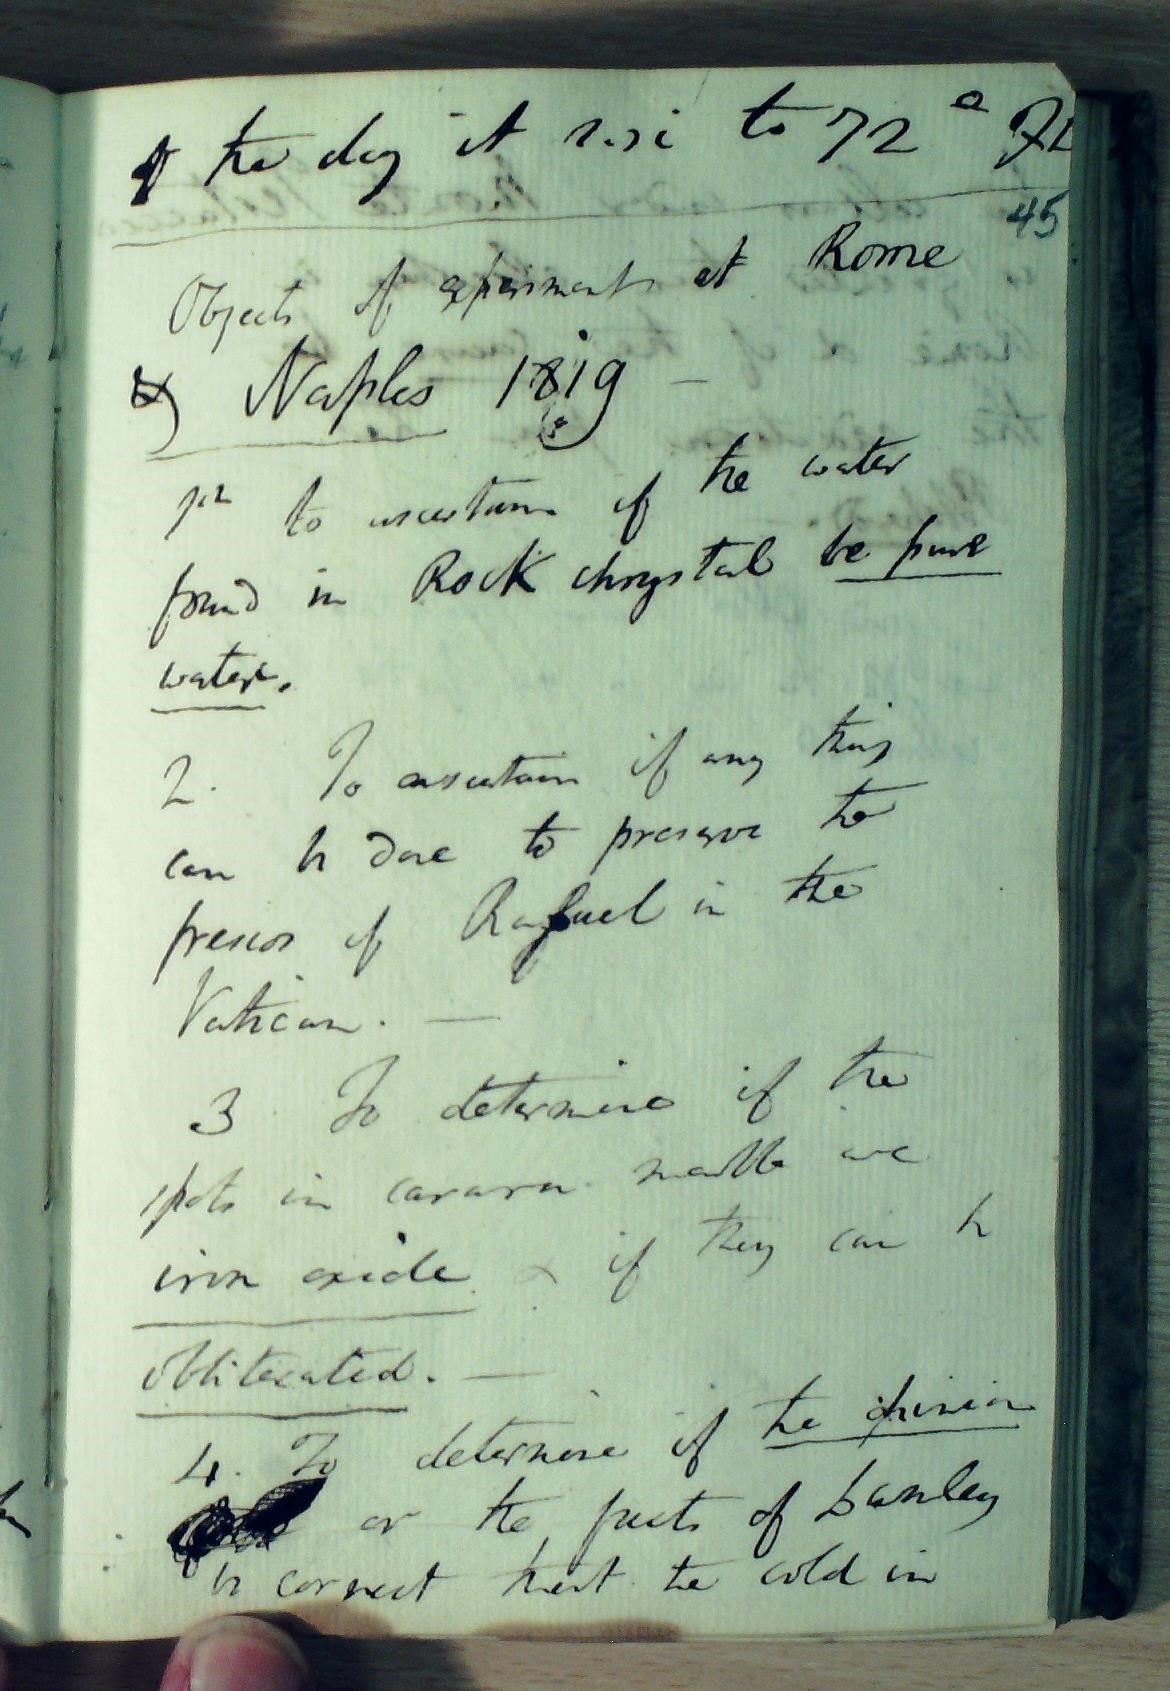 of the day it rose to 72°
45
Objects of experiments at Rome
& Naples 1819 —
1st to ascertain if the water
found in Rock chrystal be pure
water.
2. To ascertain if any thing
can be done to preserve the
frescos of Rafael in the
Vatican. —
3 To determine if the
spots in carara marble are
iron oxide & if they can be
obliterated. —
4. To determine if the opinion
or the facts of
be correct that the cold in